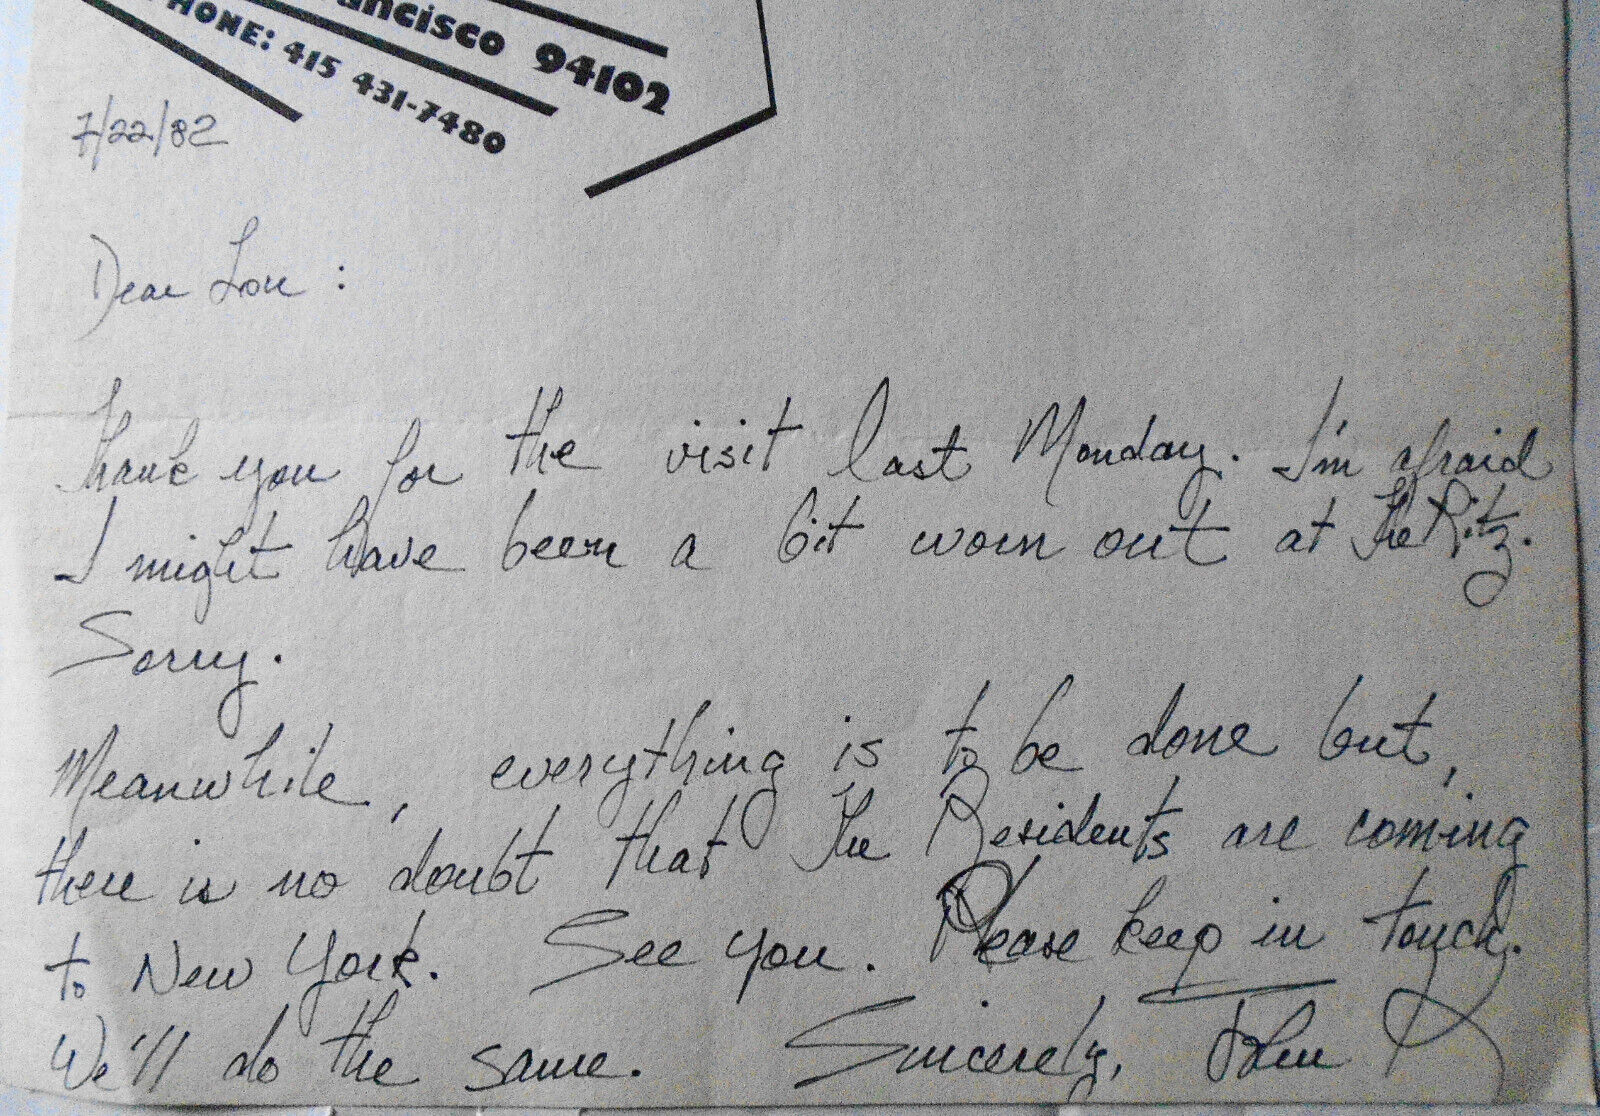 ancisco 94102
HONE: 415 431-7480
7/22/82
Dear Lou :
Thank you for the visit last Monday. I'm afraid
I might have been a bit worn out at The Ritz.
Sorry.
Meanwhile, everything is to be done but,
there is no doubt that The Residents are coming
to New York. See you. Please keep in touch.
We'll do the same. Sincerely, John